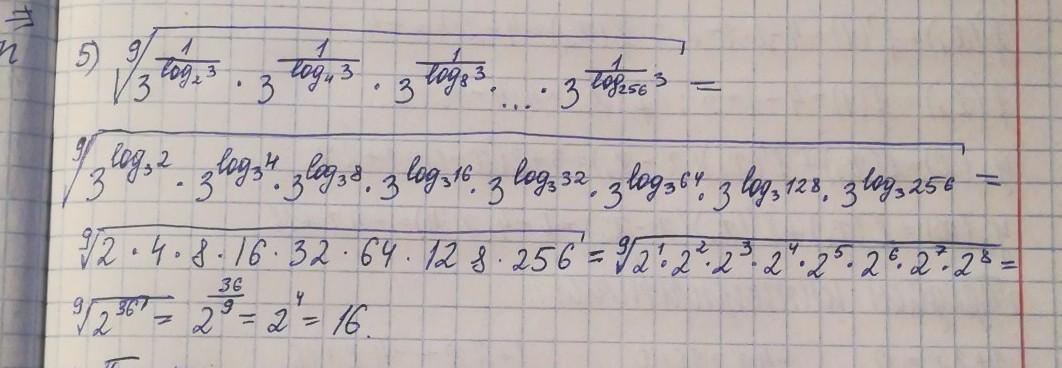 5) ⁹√(3^(1/log₂3) · 3^(1/log₄3) · 3^(1/log₈3) · ... · 3^(1/log₂₅₆3)) =
⁹√(3^(log₃2) · 3^(log₃4) · 3^(log₃8) · 3^(log₃16) · 3^(log₃32) · 3^(log₃64) · 3^(log₃128) · 3^(log₃256)) =
⁹√(2 · 4 · 8 · 16 · 32 · 64 · 128 · 256) = ⁹√(2¹ · 2² · 2³ · 2⁴ · 2⁵ · 2⁶ · 2⁷ · 2⁸) =
⁹√(2³⁶) = 2^(36/9) = 2⁴ = 16.